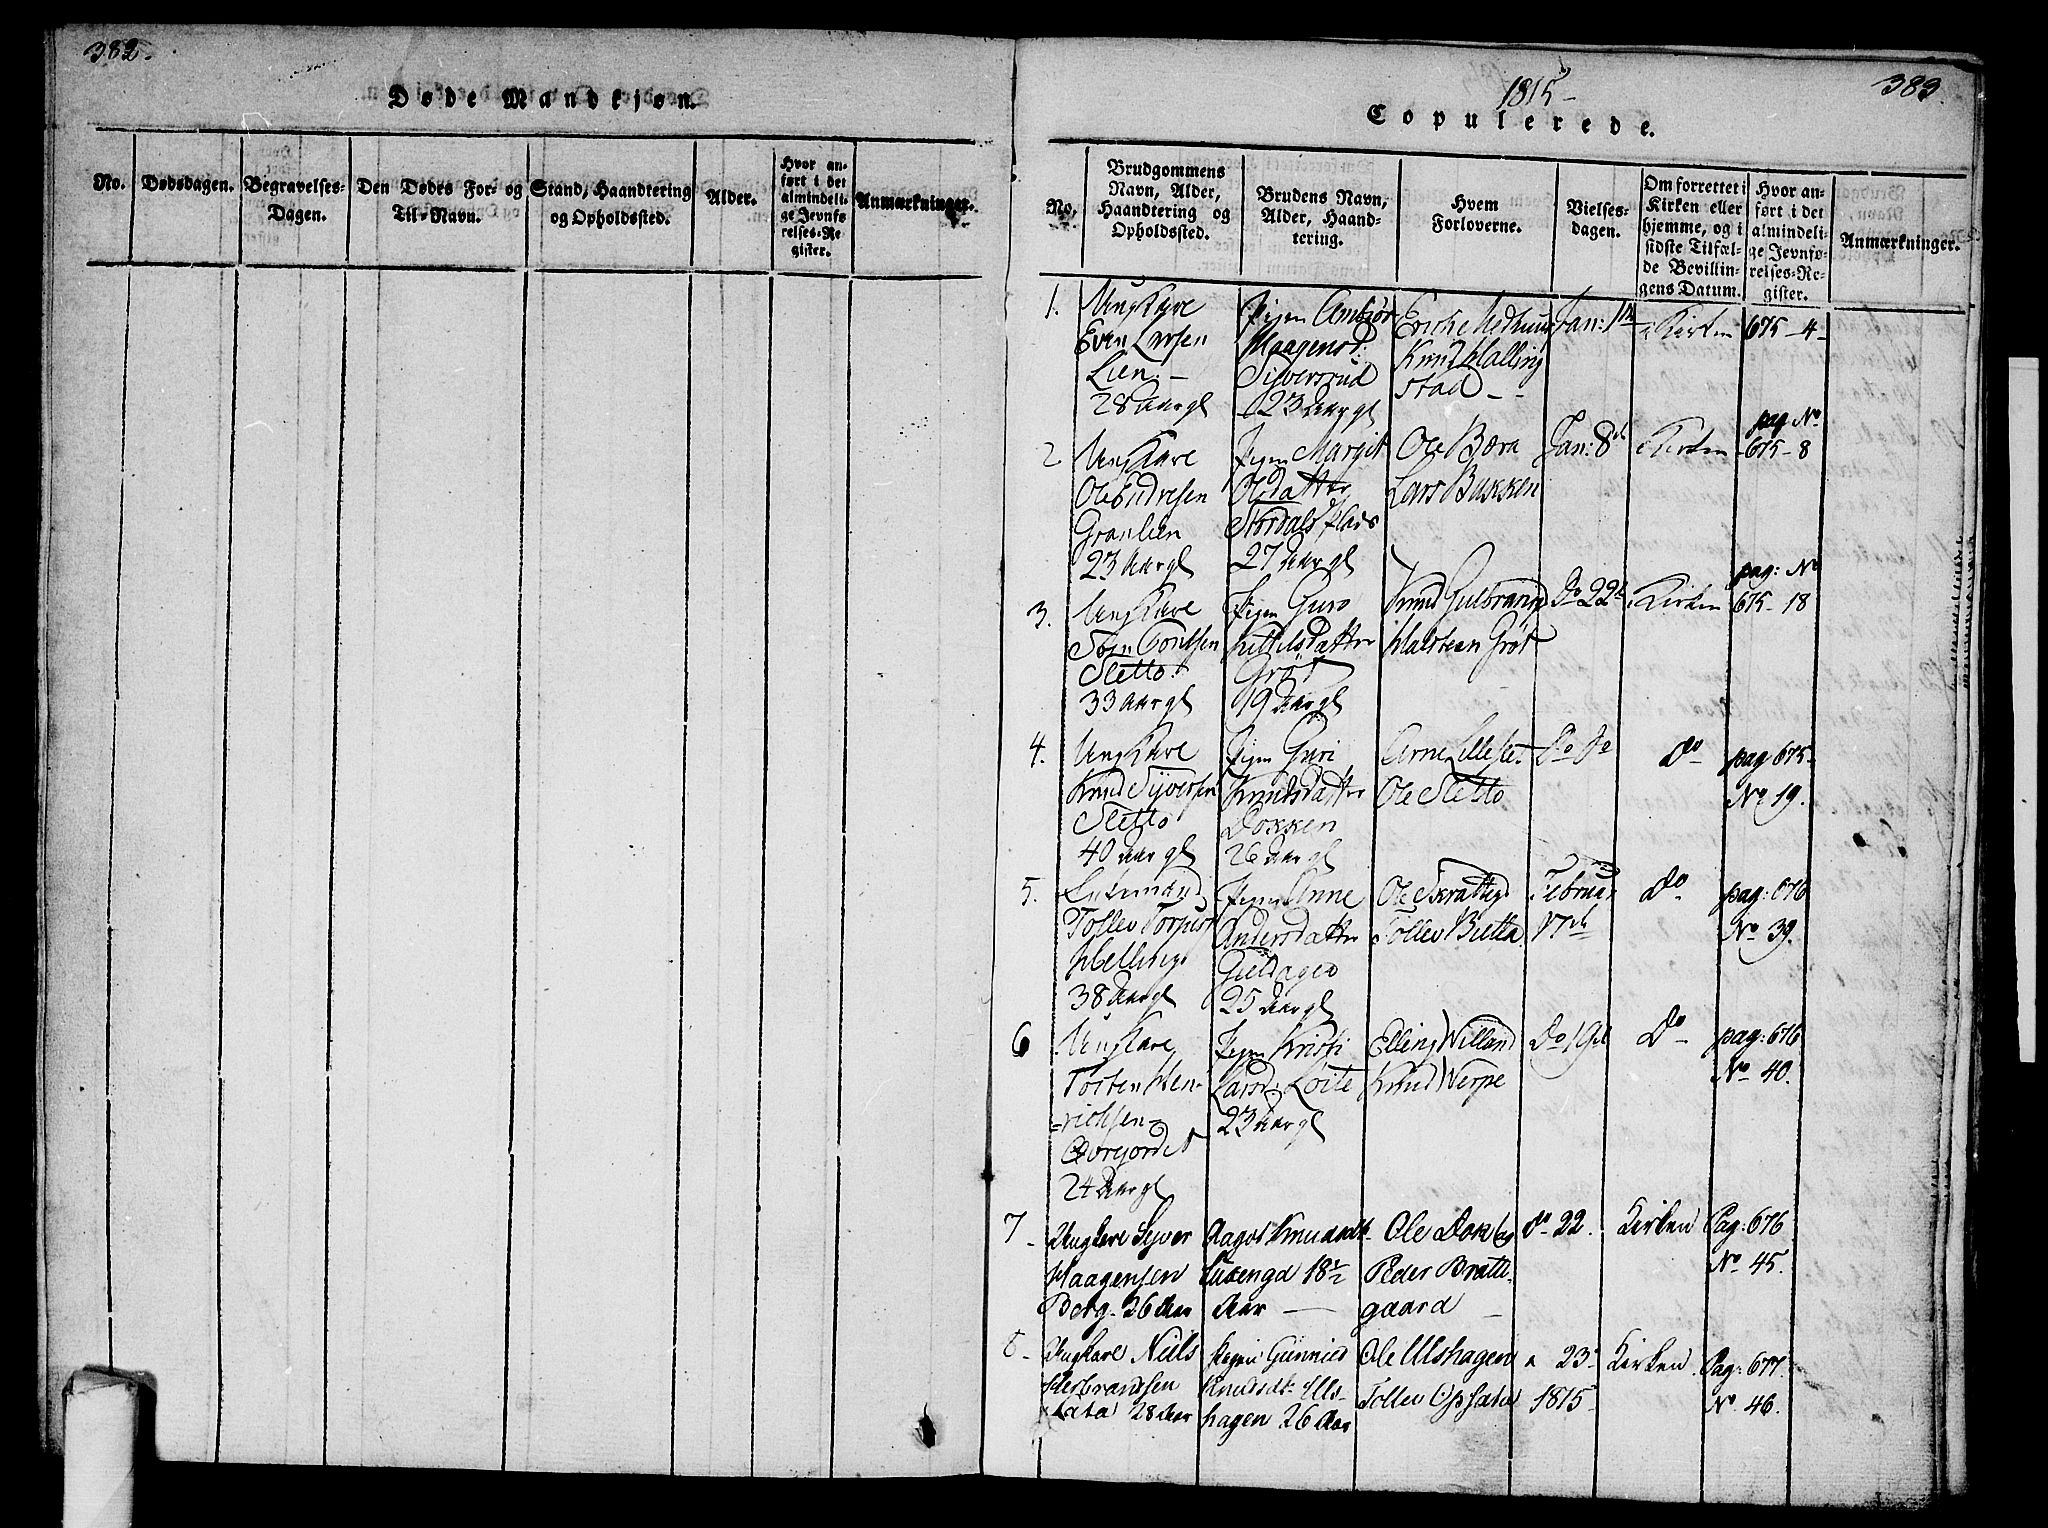 382.
Døde Mandkjøn.
No.
Dødsdagen.
Begravelses-
Dagen.
Den Dødes For- og
Til-Navn.
Stand, Haandtering
og Opholdssted.
Alder.
Hvor an-
ført i det
almindeli-
ge Jevnfø-
relses-Re-
gister.
Anmærkninger.
1815-
383.
Copulerede.
No.
Brudgommens
Navn, Alder,
Haandtering og
Opholdssted.
Brudens Navn,
Alder, Haand-
tering.
Hvem
Forloverne.
Vielses-
dagen.
Om forrettet i
Kirken eller
hjemme, og i
sidste Tilfæl-
de Bevillin-
gens Datum.
Hvor an-
ført i det
almindeli-
ge Jevnfø-
relses-Re-
gister.
Anmærkninger.
1.
Ungkare
Even Larsen
Lien.-
28 Aar gl
Pigen Ambjør
Haagensd:
Siversrud
23 Aar gl
Knud Halling
stad
Jan: 1te
Kirken
675-4-
2
Ungkare
Ole
Graulien
23 Aar gl
Pigen Margit
Olsdatter
Nordals Plads
27 Aar gl
Ole Bæra
Lars Bakken
Jan: 8de
Kirken
pag No
675-8
3.
Ungkare
Sletto.
33 Aar gl
Pigen Guro
Kittelsdatter
Grøt
19 Aar gl
Knud Gulbrand
Halsteen Grøt
Do 22de
Kirken
pag: No
675-18
4.
Ungkare
Knud Syversen
Sletto
40 Aar gl
Pigen Guri
Knudsdatter
Dokken
26 Aar gl
Arne
Ole Sletto
Do Do
Do
pag 675-
No 19.
5.
Enkemand
Tollev
38 Aar gl
Pigen Anne
Andersdatter
25 Aar gl
Ole
Tollev
Februar
17de
Do
pag: 676
No 39.
6
Ungkare
Tosten Hen-
=richsen-
Øvrejordet
24 Aar gl
Pigen Kristi
Larsd: Loite
23 Aar gl
Elling Villand
Knud Werpe
Do 19de
Do
pag: 676
No 40.
7
Ungkare Syver
Haagensen
Berg- 26 Aar
Aagot Knudsdt.
18½
Aar -
Ole Dok og
Peder Bratte-
gaard -
do 22.
Kirken
Pag: 676
No 45.
8-
Ungkare Niels
Herbrandsen
28 Aar
Pigen Gunnild
Knudsdt: Uls-
hagen 26 Aar
Ole Ulshagen
Tollev Opsata
23-
1815-
Kirken
Pag: 677.
No 46.